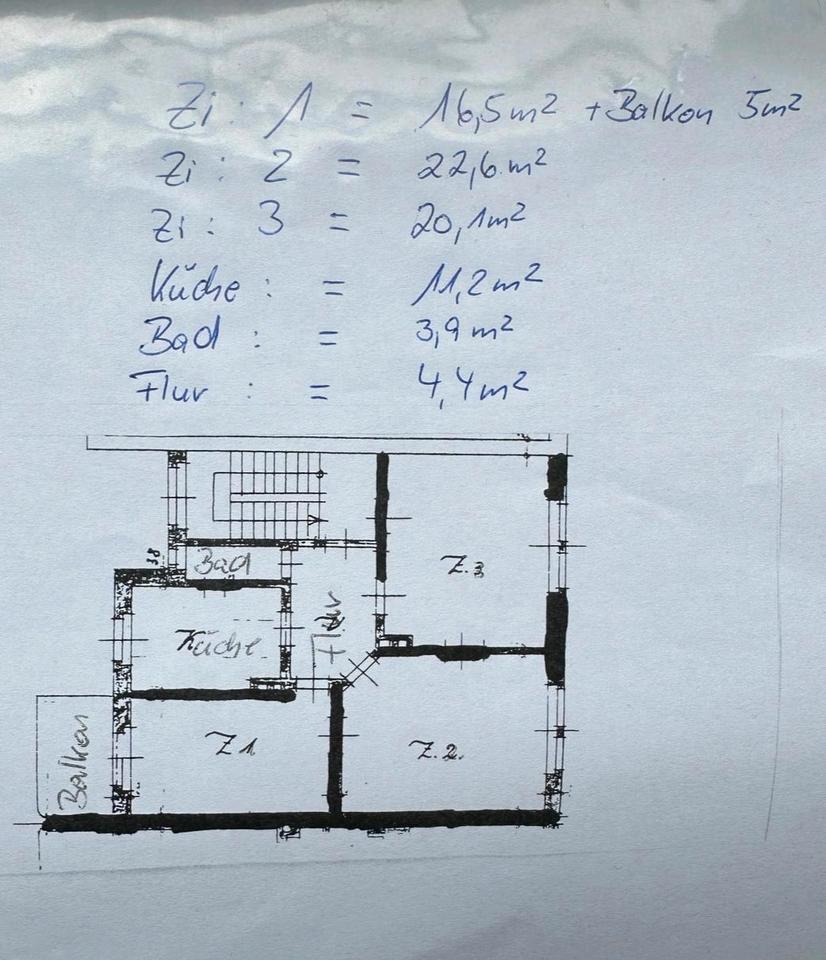 Zi: 1 = 16,5m² + Balkon 5m²
Zi: 2 = 22,6 m²
Zi: 3 = 20,1m²
Küche: = 11,2m²
Bad: = 3,9m²
Flur: = 4,4m²
38
Bad
Z.3
Küche
Flur
Z1
Z.2.
Balkon